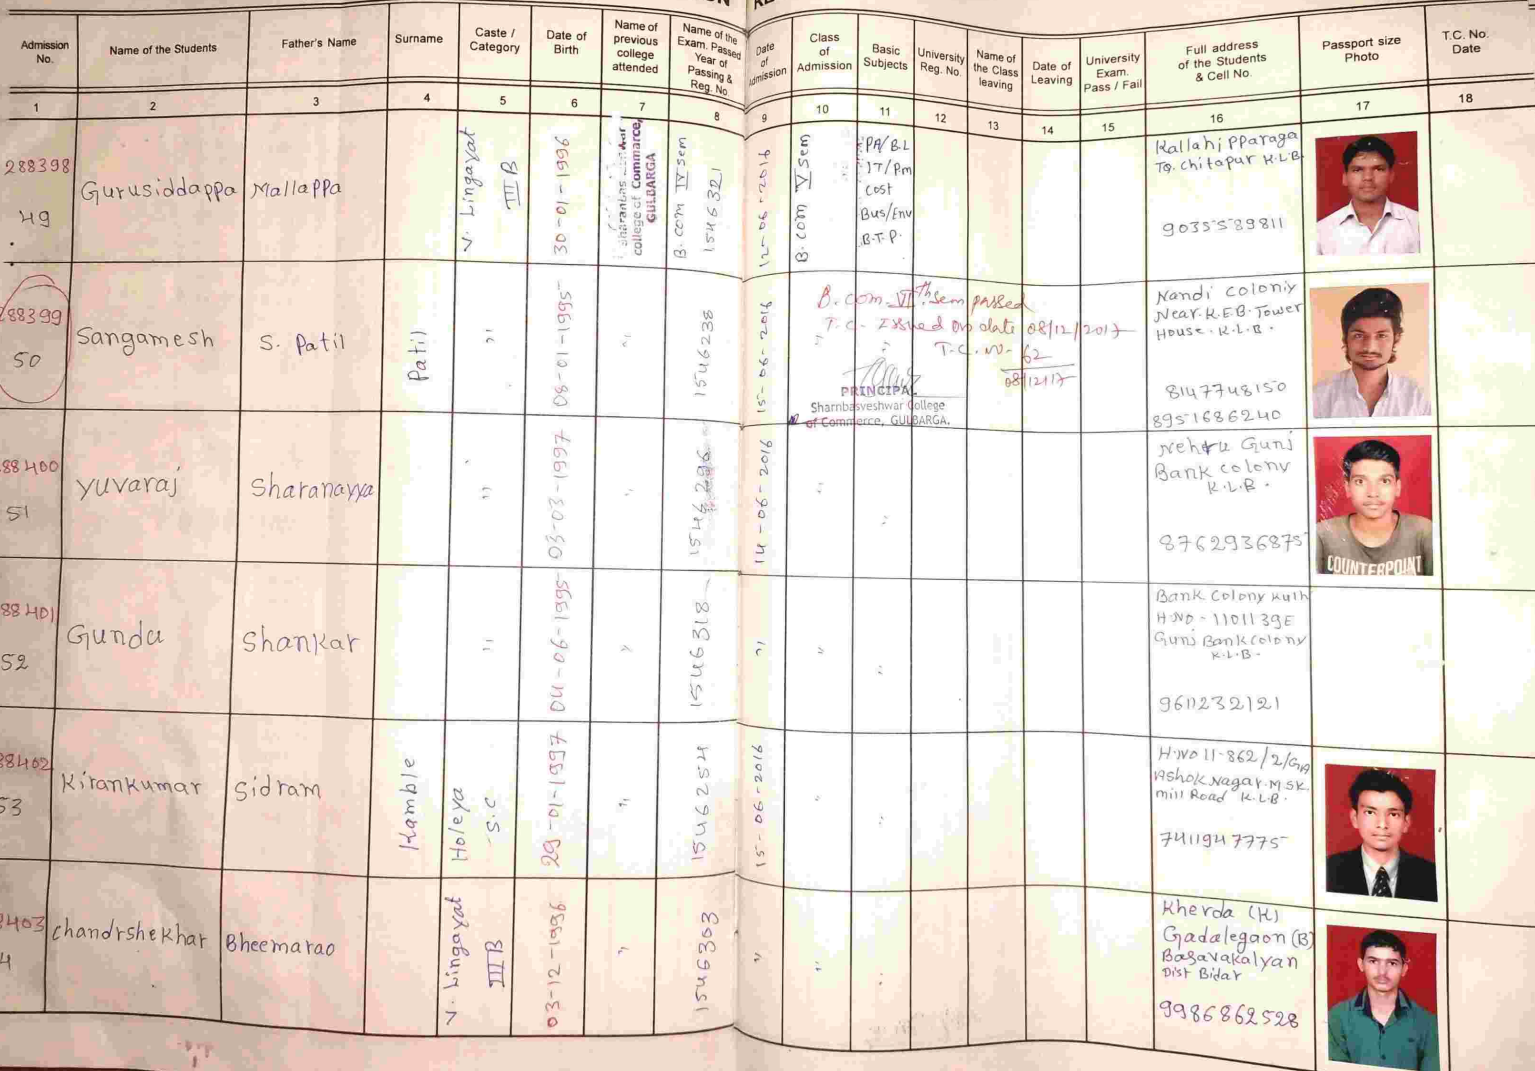 Admission No.
Name of the Students
Father's Name
Surname
Caste / Category
Date of Birth
Name of previous college attended
Name of the Exam. Passed Year of Passing & Reg. No.
Date of Admission
Class of Admission
Basic Subjects
University Reg. No.
Name of the Class leaving
Date of Leaving
University Exam. Pass / Fail
Full address of the Students & Cell No.
Passport size Photo
T.C. No. Date
1 2 3 4 5 6 7 8 9 10 11 12 13 14 15 16 17 18
288398
49
Gurusiddappa
Mallappa
V. Lingayat
III B
30-01-1996
college of Commerce,
GULBARGA
B. com IV sem
1546321
12-06-2016
B. com V sem
PA/B.L
IT/Pm
cost
Bus/Env
B.T.P.
Kallahipparaga
Tq. chitapur K.L.B
9035589811
288399
50
Sangamesh
S. Patil
Patil
"
08-01-1995
"
1546238
15-06-2016
"
"
B. com VIth sem passed
T.C. Issued on date 08/12/2017
T.C. No- 62
08/12/17
PRINCIPAL
Sharnbasveshwar College
of Commerce, GULBARGA.
Nandi colony
Near. K.E.B. Tower
House. K.L.B.
8147748150
8951686240
88400
51
yuvaraj
Sharanayya
"
03-03-1997
"
1546296
14-06-2016
"
"
Nehru Gunj
Bank colony
K.L.B.
8762936875
COUNTERPOINT
88401
52
Gundu
Shankar
"
04-06-1995
"
1546318
"
"
"
Bank Colony
H.NO - 1101139E
Gunj Bank colony
K.L.B-
9611232121
88402
53
Kirankumar
Sidram
Kamble
Holeya
S.C
29-01-1997
"
1546254
15-06-2016
"
"
H.NO 11-862/2/
Ashok Nagar. M.S.K.
mill Road K.L.B.
7411947775
8403
4
chandrshekhar
Bheemarao
V. Lingayat
III B
03-12-1996
"
1546303
"
"
"
Kherda (K)
Gadalegaon (B)
Basavakalyan
Dist Bidar
9986862528